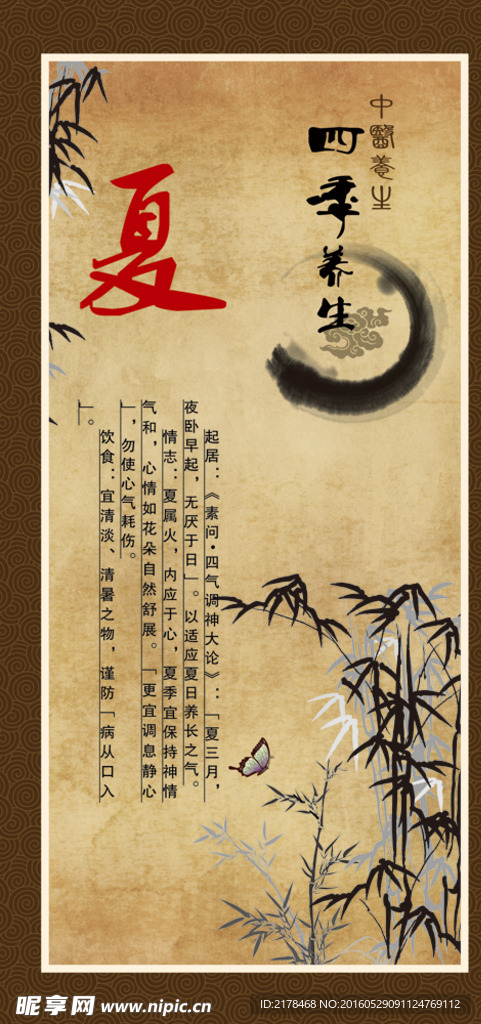 中醫養生
四季养生
夏
起居：《素问·四气调神大论》：「夏三月，
夜卧早起，无厌于日」。以适应夏日养长之气。
情志：夏属火，内应于心，夏季宜保持神情
气和，心情如花朵自然舒展。「更宜调息静心
」，勿使心气耗伤。
饮食：宜清淡、清暑之物，谨防「病从口入
」。
昵享网 www.nipic.cn
ID:2178468 NO:20160529091124769112